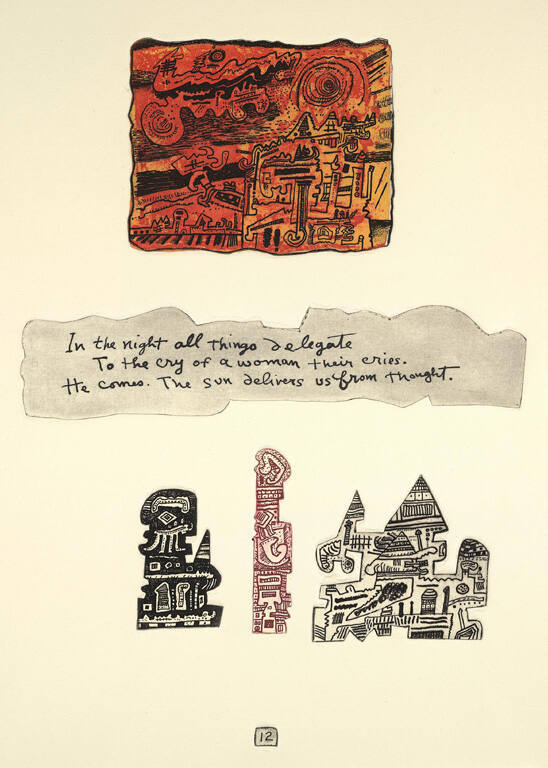 In the night all things delegate
To the cry of a woman their cries.
He comes. The sun delivers us from thought.
12